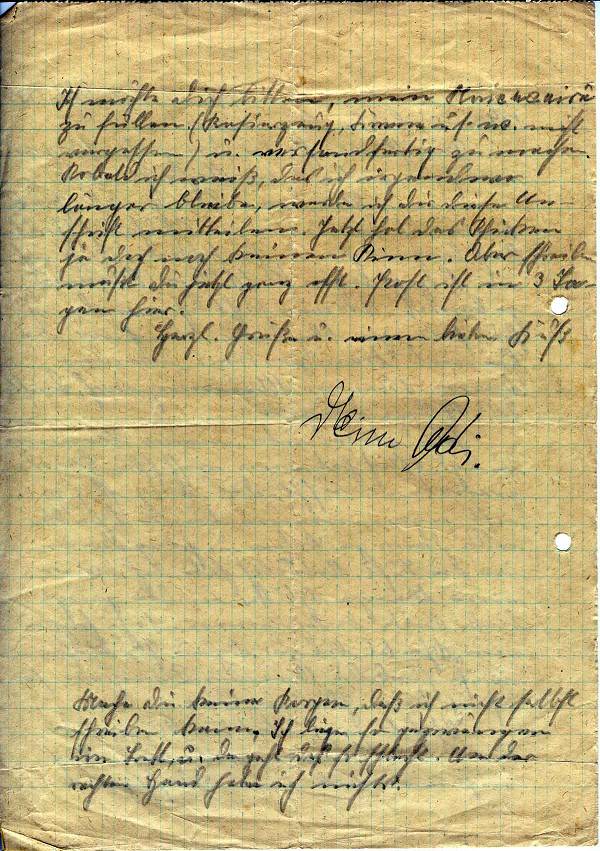 Ich möchte dich bitten, mein Necessaire
zu füllen (Rasierzeug, Kamm u.s.w. nicht
vergessen) u. versandfertig zu machen.
Sobald ich weiß, das ich irgendwo
länger bleibe, werde ich dir diese An-
schrift mitteilen. Jetzt hat das Schicken
ja doch noch keinen Sinn. Aber schreiben
mußt du jetzt ganz offt. Post ist in 3 Ta-
gen hier.
Herzl. Grüße u. einen lieben Kuß
Dein Adi.
Mache dir keine Sorgen, daß ich nicht selbst
schreiben kann. Ich liege so gezwungen
im Bett, u. da geht das so schlecht. An der
rechten Hand habe ich nichts.